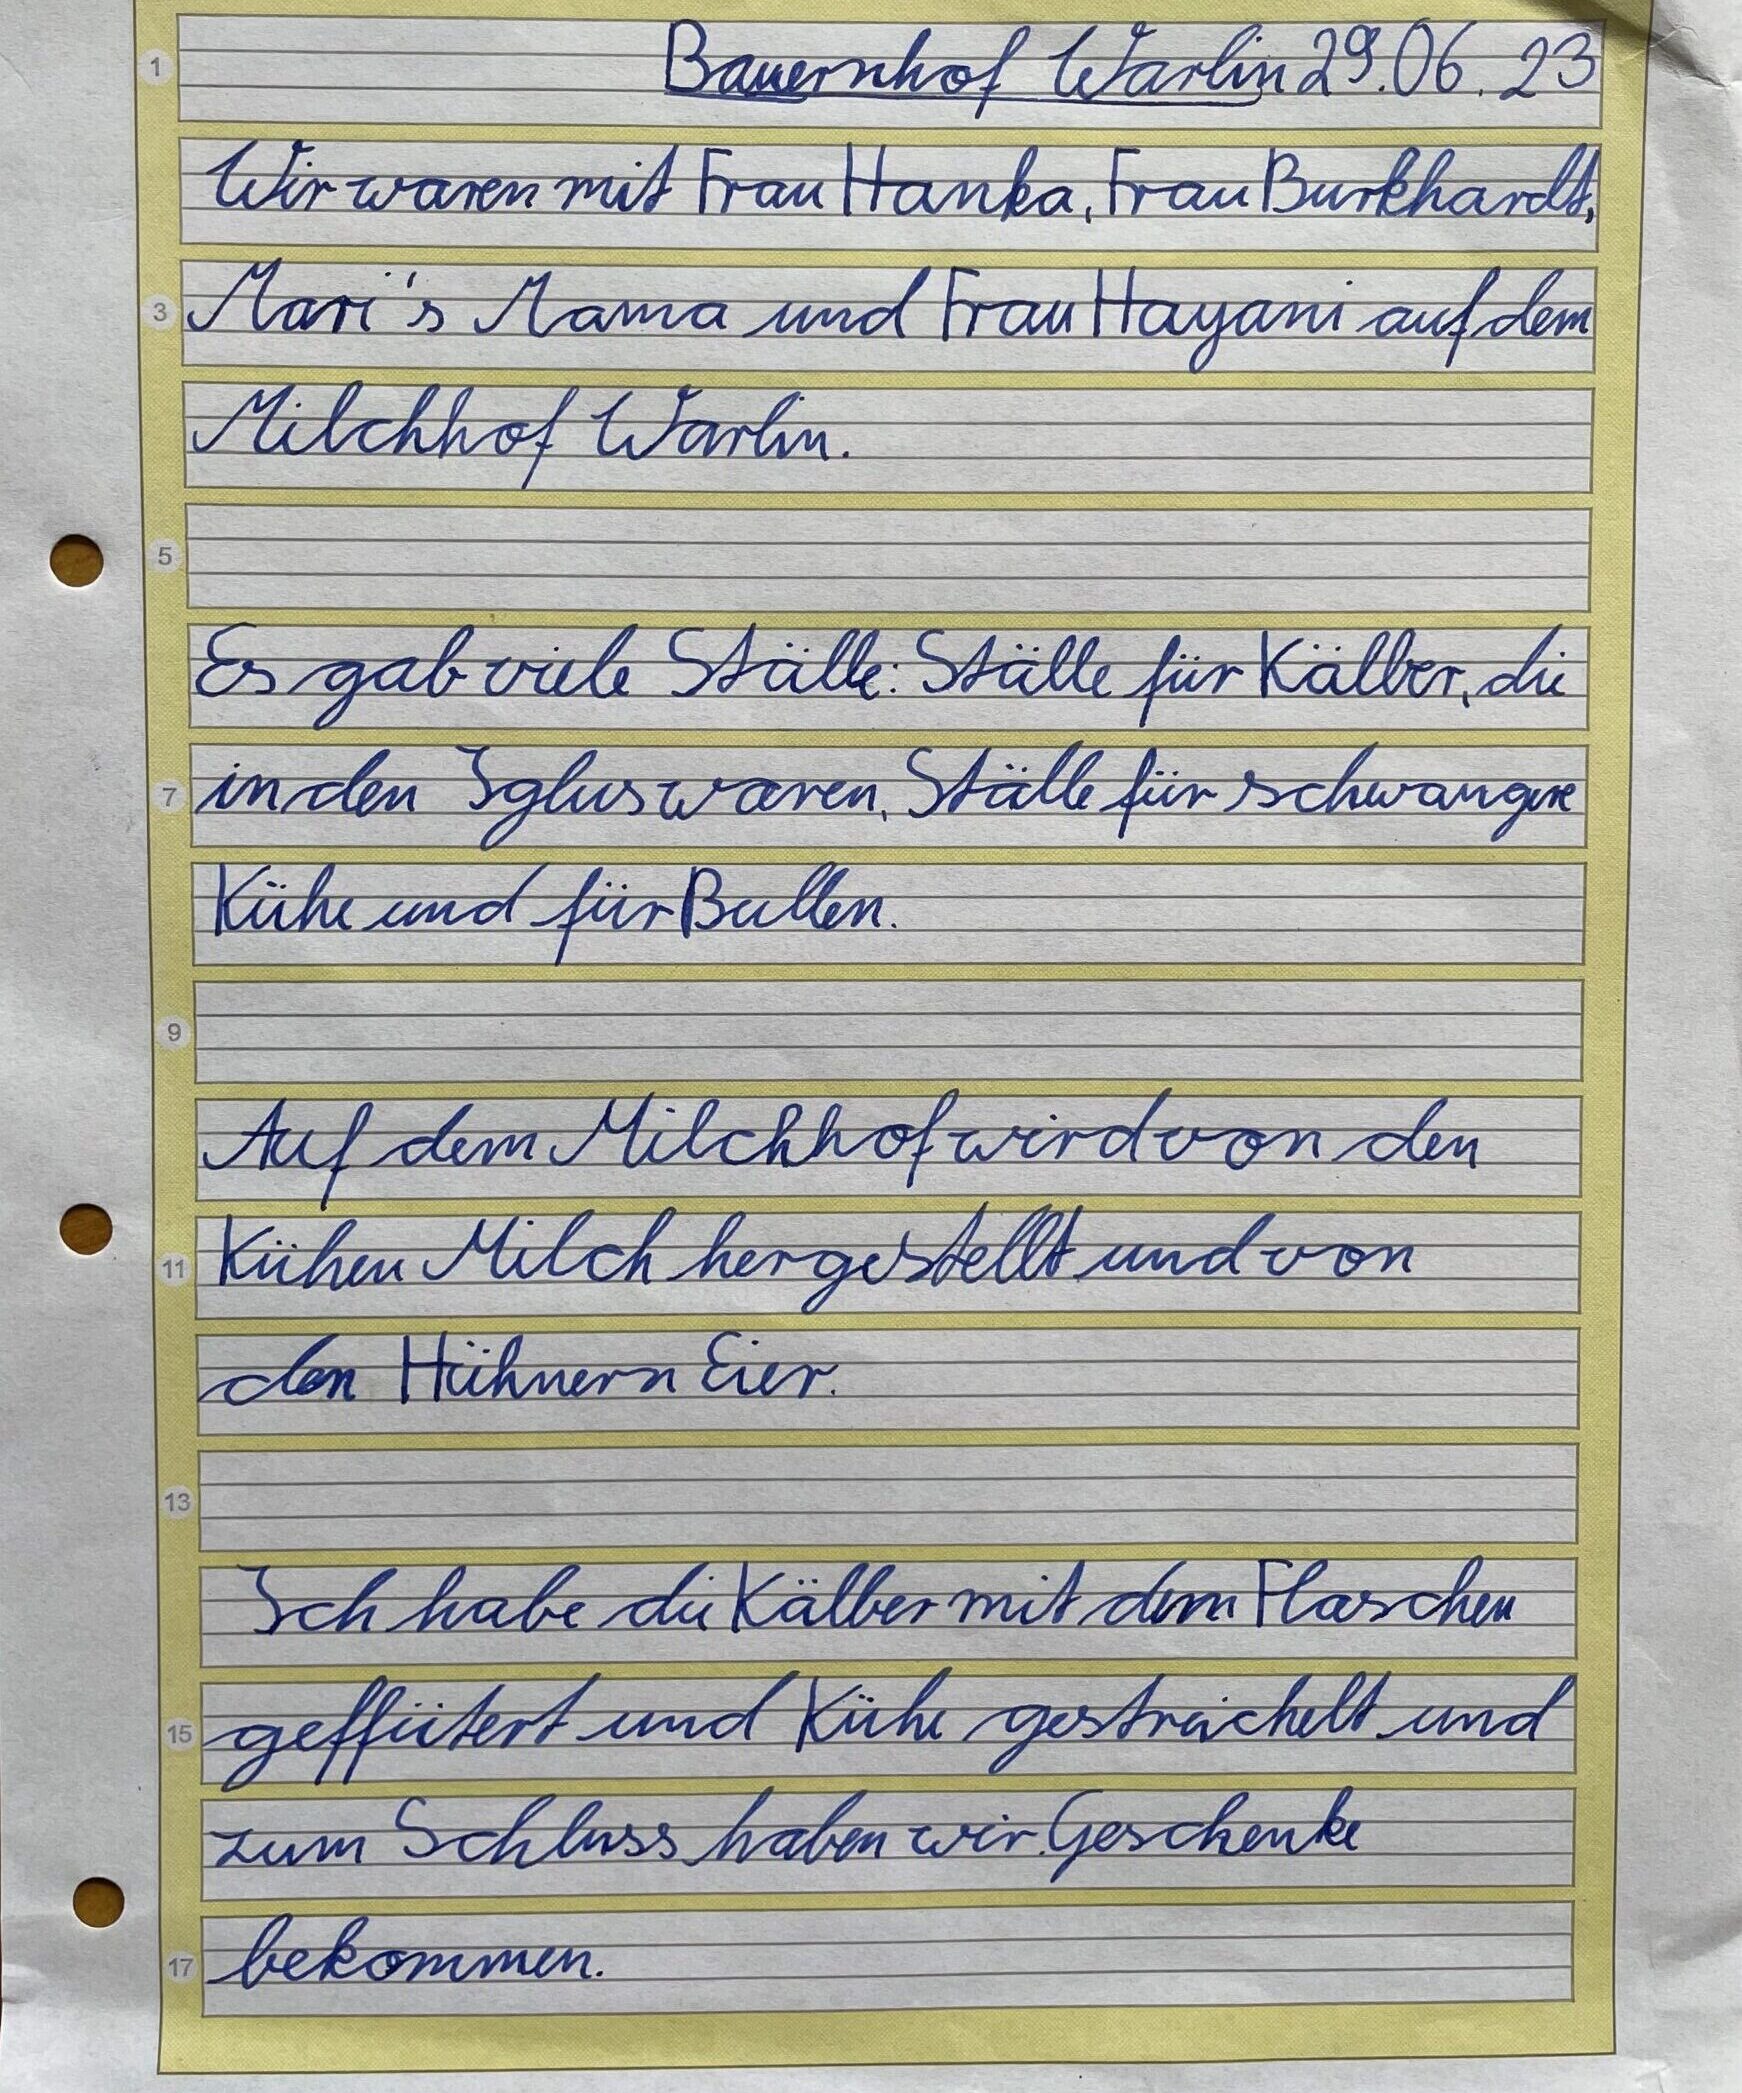 1 Bauernhof Warlin 29.06.23
Wir waren mit Frau Hanka, Frau Burkhardt,
3 Mari's Mama und Frau Hayani auf dem
Milchhof Warlin.
5
Es gab viele Ställe: Ställe für Kälber, die
7 in den Iglus waren, Ställe für schwangere
Kühe und für Bullen.
9
Auf dem Milchhof wird von den
11 Kühen Milch hergestellt und von
den Hühnern Eier.
13
Ich habe die Kälber mit dem Flaschen
15 geffütert und Kühe gestreichelt und
zum Schluss haben wir Geschenke
17 bekommen.